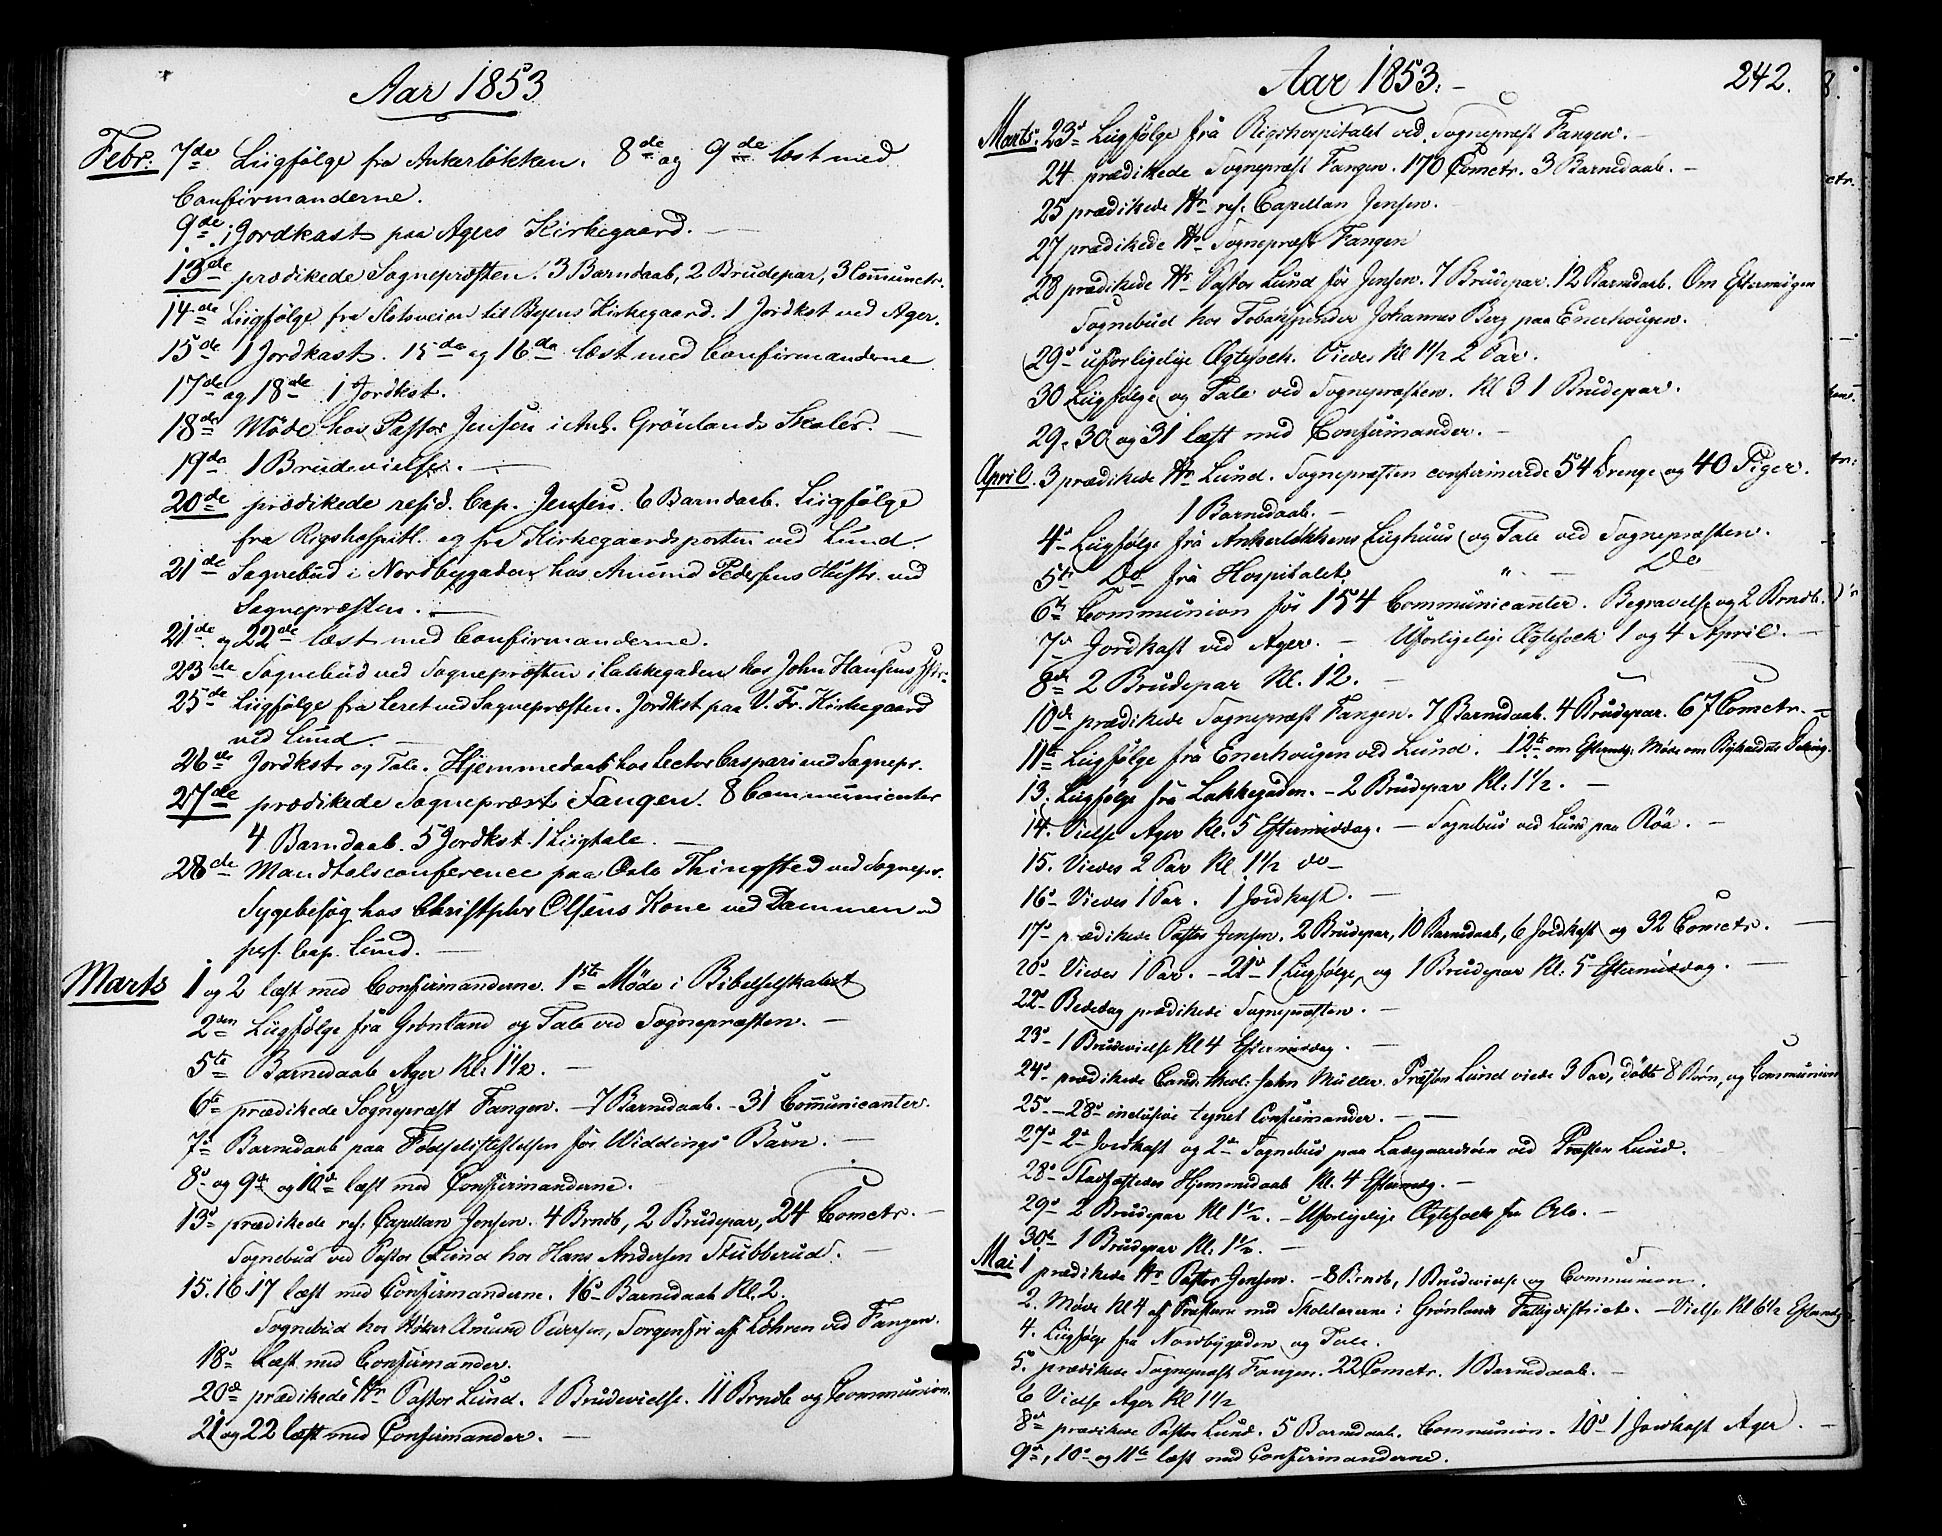 Aar 1853
Febr: 7de Liigfölge fra Ankerløkken. 8de og 9de læst med
Confirmanderne.
9de 1 Jordkast paa Agers Kirkegaard. —
13de prædikede Sognepræsten. 3 Barndaab, 2 Brudepar, 3 Comunctr.
14de Liigfölge fra Slotsveien til Byens Kirkegaard. 1 Jordkst ved Ager.
15de 1 Jordkast. 15de og 16de læst med Confirmanderne
17de og 18de 1 Jordkst.
18de Möde hos Pastor Jensen i Anl. Grönlands Skoler. —
19de 1 Brudevielse. —
20de prædikede resid. Cap. Jensen. 6 Barndaab. Liigfölge
fra Rigshospitl. og fra Kirkegaardsporten ved Lund.
21de Sognebud i Nordbygaden hos Amund Pedersens Hustr. ved
Sognepræsten. —
21de og 22de læst med Confirmanderne.
23de Sognebud ved Sognepræsten i Lakkegaden hos John Hansens
25de Liigfölge fra Leret ved Sognepræsten. Jordkst paa V. Fr. Kirkegaard
ved Lund. —
26de Jordkst og Tale. Hjemmedaab hos Lector Caspari ved Sognepr.
27de prædikede Sognepræst Fangen. 8 Communicenter
4 Barndaab. 5 Jordkst. 1 Liigtale. —
28de Mandtalsconference paa Oslo Thingsted ved Sognepr.
Sygebesög hos Christopher Olsens Kone ved Dammen ved
pers. Cap. Lund. —
Marts 1 og 2 læst med Confirmanderne. 1ste Möde i Bibelselskabet
2den Liigfølge frå Grønland og Tale ved Sognepræsten. —
5te Barnedaab Ager Kl: 11½. —
6te prædikede Sognepræst Fangen. — 7 Barnedaab. — 31 Communicanter.
7de Barnedaab paa Fødselsstiftelsen for Widdings Barn. —
8de og 9de og 10de læst med Confirmanderne. —
13de prædikede res. Capellan Jensen. 4 Brndb, 2 Brudepar, 24 Comctr. —
Sognebud ved Pastor Lund hos Hans Andersen Stubberud. —
15. 16. 17 læst med Confirmanderne. 16de Barnedaab Kl. 2.
Sognebud hos Amund Pedersen, Sorgenfri ved Fangen.
18de Læst med Confirmander.
20de prædikede Hr Pastor Lund. 1 Brudevielse. 11 Brndb og Communion.
21 og 22 læst med Confirmander. —
Aar 1853. —
242.
Marts. 23de Liigfølge frå Rigshospitalet ved Sognepræst Fangen. —
24 prædikede Sognepræst Fangen. 170 Comctr. 3 Barnedaab. —
25 prædikede Hr res. Capellan Jensen.
27 prædikede Hr Sognepræst Fangen
28 prædikede Hr Pastor Lund for Jensen. 7 Brudepar. 12 Barnedaab. Om Eftermdgen
Sognebud hos Tobakspinder Johannes Berg paa Enerhougen.
29de uforligelige Ægtefolk. Viedes Kl 1½ 2 Par.
30 Liigfølge og Tale ved Sognepræsten. Kl 3 1 Brudepar.
29. 30 og 31 læst med Confirmander. —
April. 3 prædikede Hr Lund. Sognepræsten confirmerede 54 Drenge og 40 Piger.
1 Barnedaab. —
4de Liigfølge frå Ankerløkkens Liighuus og Tale ved Sognepræsten.
5te Do frå Hospitalet " — Do
6te Communion for 154 Communicanter. Begravelse og 2 Brndb.
7de Jordkast ved Ager. — Uforligelige Ægtefolk 1 og 4 April. —
8de 2 Brudepar Kl. 12. —
10de prædikede Sognepræst Fangen. 7 Barnedaab. 4 Brudepar. 67 Comctr. —
11te Liigfølge frå Enerhougen ved Lund. — 12te om Eftermdg: Møde om
13. Liigfølge frå Lakkegaden. — 2 Brudepar Kl. 1½. —
14. Vielse Ager Kl. 5 Eftermiddag. — Sognebud ved Lund paa Röa. —
15. Viedes 2 Par Kl 1½ do —
16de Viedes 1 Par. 1 Jordkast. —
17de prædikede Pastor Jensen. 2 Brudepar, 10 Barnedaab, 6 Jordkast og 32 Comctr. —
20de Viedes 1 Par. — 21de 1 Liigfølge, og 1 Brudepar Kl: 5 Eftermiddag. —
22de Bededag prædikede Sognepræsten. —
23de 1 Brudevielse Kl 4 Eftermiddag. —
24de prædikede Cand. theol. John Müller. Præsten Lund viede 3 Par, døbte 8 Børn, og Communion
25de — 28de inclusive tegnet Confirmander. — —
27de 2de Jordkast og 2de Sognebud paa ved Præsten Lund.
28de Stadfæstedes Hjemmedaab Kl. 4 Eftermdg. —
29de 2 Brudepar Kl 1½. — Uforligelige Ægtefolk fra Oslo. —
30te 1 Brudepar Kl. 1½. —
Mai 1 prædikede Hr Pastor Jensen. — 8 Brndb, 1 Brudevielse og Communion.
2. Møde Kl 4 af Præsterne med Skolelærerne i Grønlands Fattigdistrict. — Vielse Kl 6½ Eftermdg
4. Liigfølge fra Nordbygaden og Tale.
5. prædikede Sognepræst Fangen. 22 Comctr. 1 Barnedaab. —
6 Vielse Ager Kl 1½
8de prædikede Pastor Lund. 5 Barnedaab. Communion. — 10de 1 Jordkast Ager. —
9de, 10de og 11te læst med Confirmanderne.